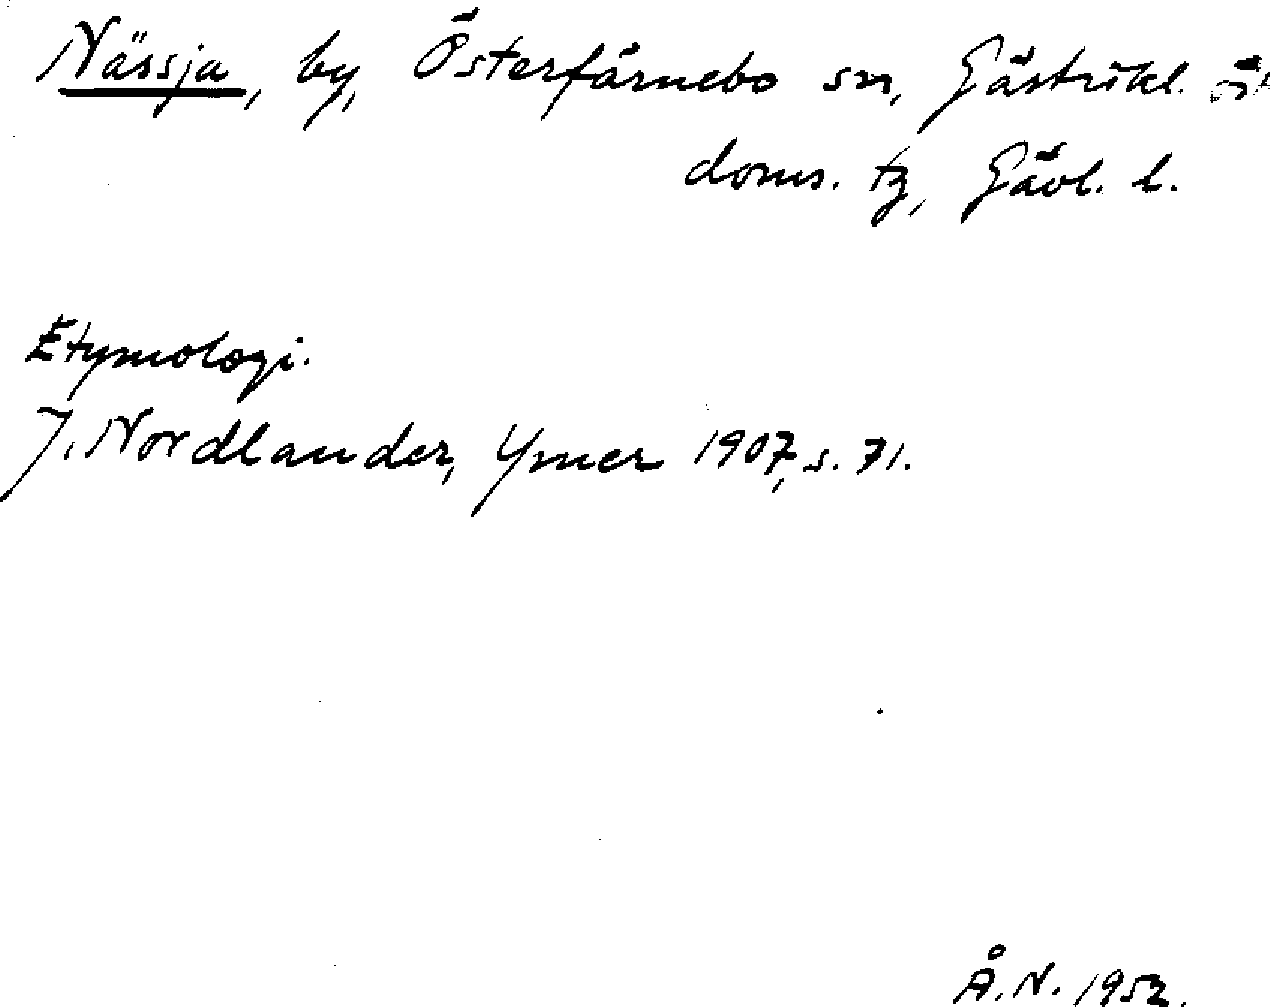 Nässja, by, Österfärnebo sn, Gästrikl.
doms. tg, Gävl. l.
Etymologi.
J. Nordlander, Ymer 1907, s. 71.
Å.N. 1952.